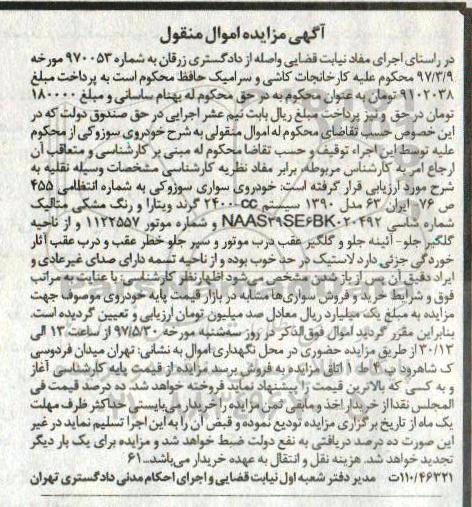 آگهی مزایده اموال منقول
در راستای اجرای مفاد نیابت قضایی واصله از دادگستری زرقان به شماره ۹۷۰۰۵۳ مورخه
۹۷/۳/۹ محکوم علیه کارخانجات کاشی و سرامیک حافظ محکوم است به پرداخت مبلغ
۹۱۰۲۰۳۸ تومان به عنوان محکوم به در حق محکوم له بهنام ساسانی و مبلغ ۱۸۰۰۰۰
تومان در حق و نیز پرداخت مبلغ ریال بابت نیم عشر اجرایی در حق صندوق دولت که در
این خصوص حسب تقاضای محکوم له اموال منقولی به شرح خودروی سوزوکی از محکوم
علیه توسط این اجراء توقیف و حسب تقاضا محکوم له مبنی بر کارشناسی و متعاقب آن
ارجاع امر به کارشناس مربوطه، برابر مفاد نظریه کارشناسی مشخصات وسیله نقلیه به
شرح مورد ارزیابی قرار گرفته است: خودروی سواری سوزوکی به شماره انتظامی ۴۵۵
ص ۷۶ - ایران ۶۳ مدل ۱۳۹۰ سیستم ۲۴۰۰-cc گرند ویتارا و رنگ مشکی متالیک
شماره شاسی NAAS۳۹SE۶BK۰۲۰۴۹۲ و شماره موتور ۱۱۲۲۵۵۷ و از ناحیه
گلگیر جلو - آئینه جلو و گلگیر عقب درب موتور و سپر جلو خطر عقب و درب عقب آثار
خوردگی جزئی دارد لاستیک در حد خوب بوده و از ناحیه تسمه دارای صدای غیرعادی و
ایراد دقیق آن پس از باز شدن مشخص می‌شود اظهارنظر کارشناسی با عنایت به مراتب
فوق و شرایط خرید و فروش سواری‌ها مشابه در بازار قیمت پایه خودروی موصوف جهت
مزایده به مبلغ یک میلیارد ریال معادل صد میلیون تومان ارزیابی و تعیین گردیده است.
بنابراین مقرر گردید اموال فوق‌الذکر در روز سه‌شنبه مورخه ۹۷/۵/۳۰ از ساعت ۱۳ الی
۳۰/۱۳ از طریق مزایده حضوری در محل نگهداری اموال به نشانی: تهران میدان فردوسی
ک شاهرود پ ۴ ط ۱ اتاق مزایده به فروش برسد مزایده از قیمت پایه کارشناسی آغاز
و به کسی که بالاترین قیمت را پیشنهاد نماید فروخته خواهد شد. ده درصد قیمت فی
المجلس نقدا از خریدار اخذ و مابقی ثمن مزایده را خریدار می‌بایستی حداکثر ظرف مهلت
یک ماه از تاریخ برگزاری مزایده تودیع نموده و قبض آن را به این اجرا تسلیم نماید در غیر
این صورت ده درصد دریافتی به نفع دولت ضبط خواهد شد و مزایده برای یک بار دیگر
تجدید خواهد شد. هزینه نقل و انتقال به عهده خریدار می‌باشد. ۶۱
۱۱۰/۴۶۳۲۱ت مدیر دفتر شعبه اول نیابت قضایی و اجرای احکام مدنی دادگستری تهران